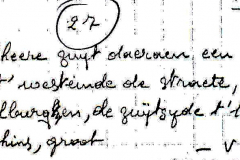 27
heere zuyt daeraen een
t' westeinde de straete,
llburghen, de zuijtzyde t'
hins, groot
- V